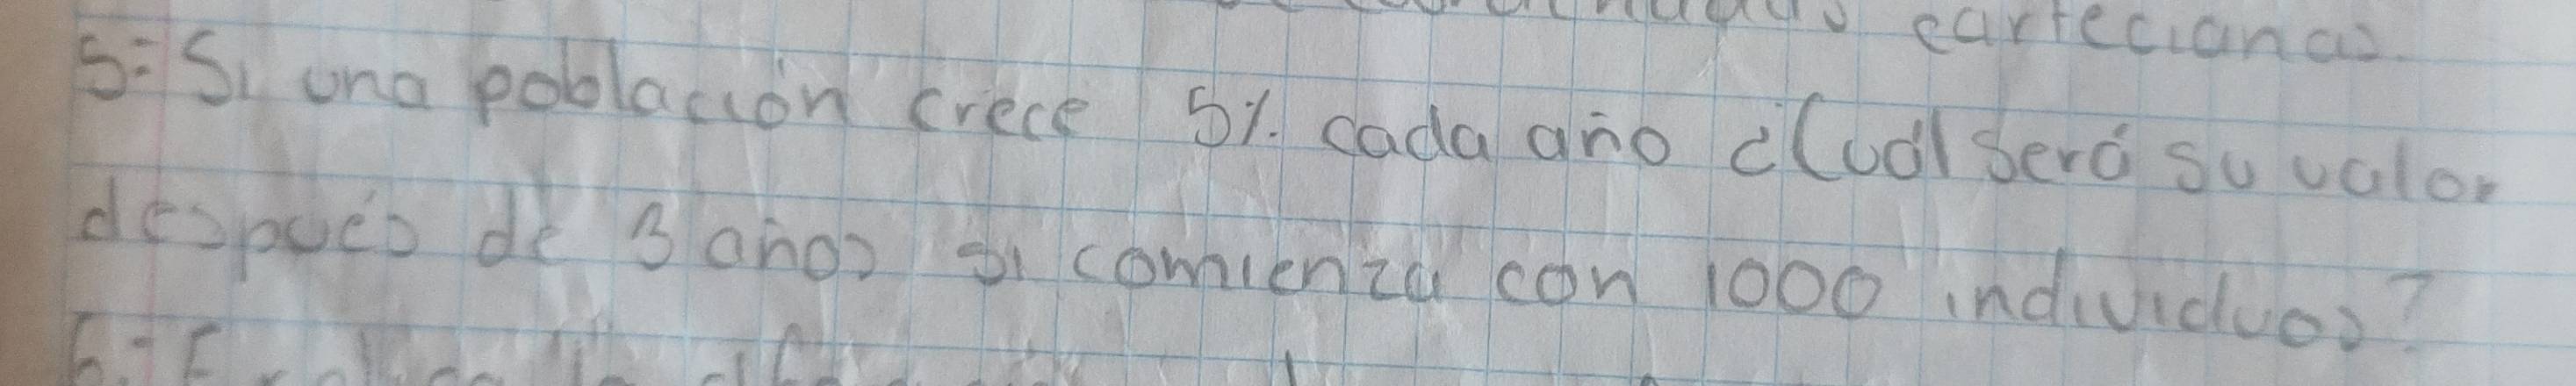 cartecianas.
5= Si una población crece 5% cada año ¿Cuál será su valor
después de 3 años si comienza con 1000 individuos?